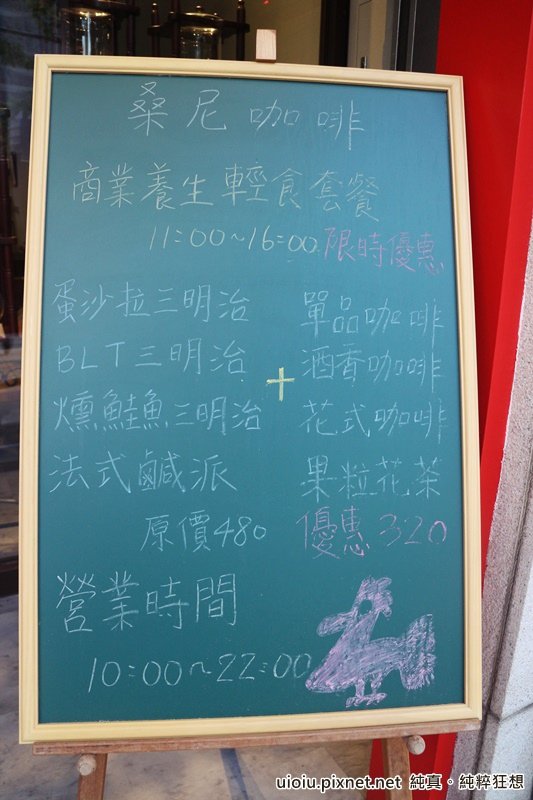 桑尼咖啡
商業養生輕食套餐
11:00~16:00 限時優惠
蛋沙拉三明治 單品咖啡
BLT三明治 + 酒香咖啡
燻鮭魚三明治 花式咖啡
法式鹹派 果粒花茶
原價480 優惠320
營業時間
10:00~22:00
uioiu.pixnet.net 純真。純粹狂想